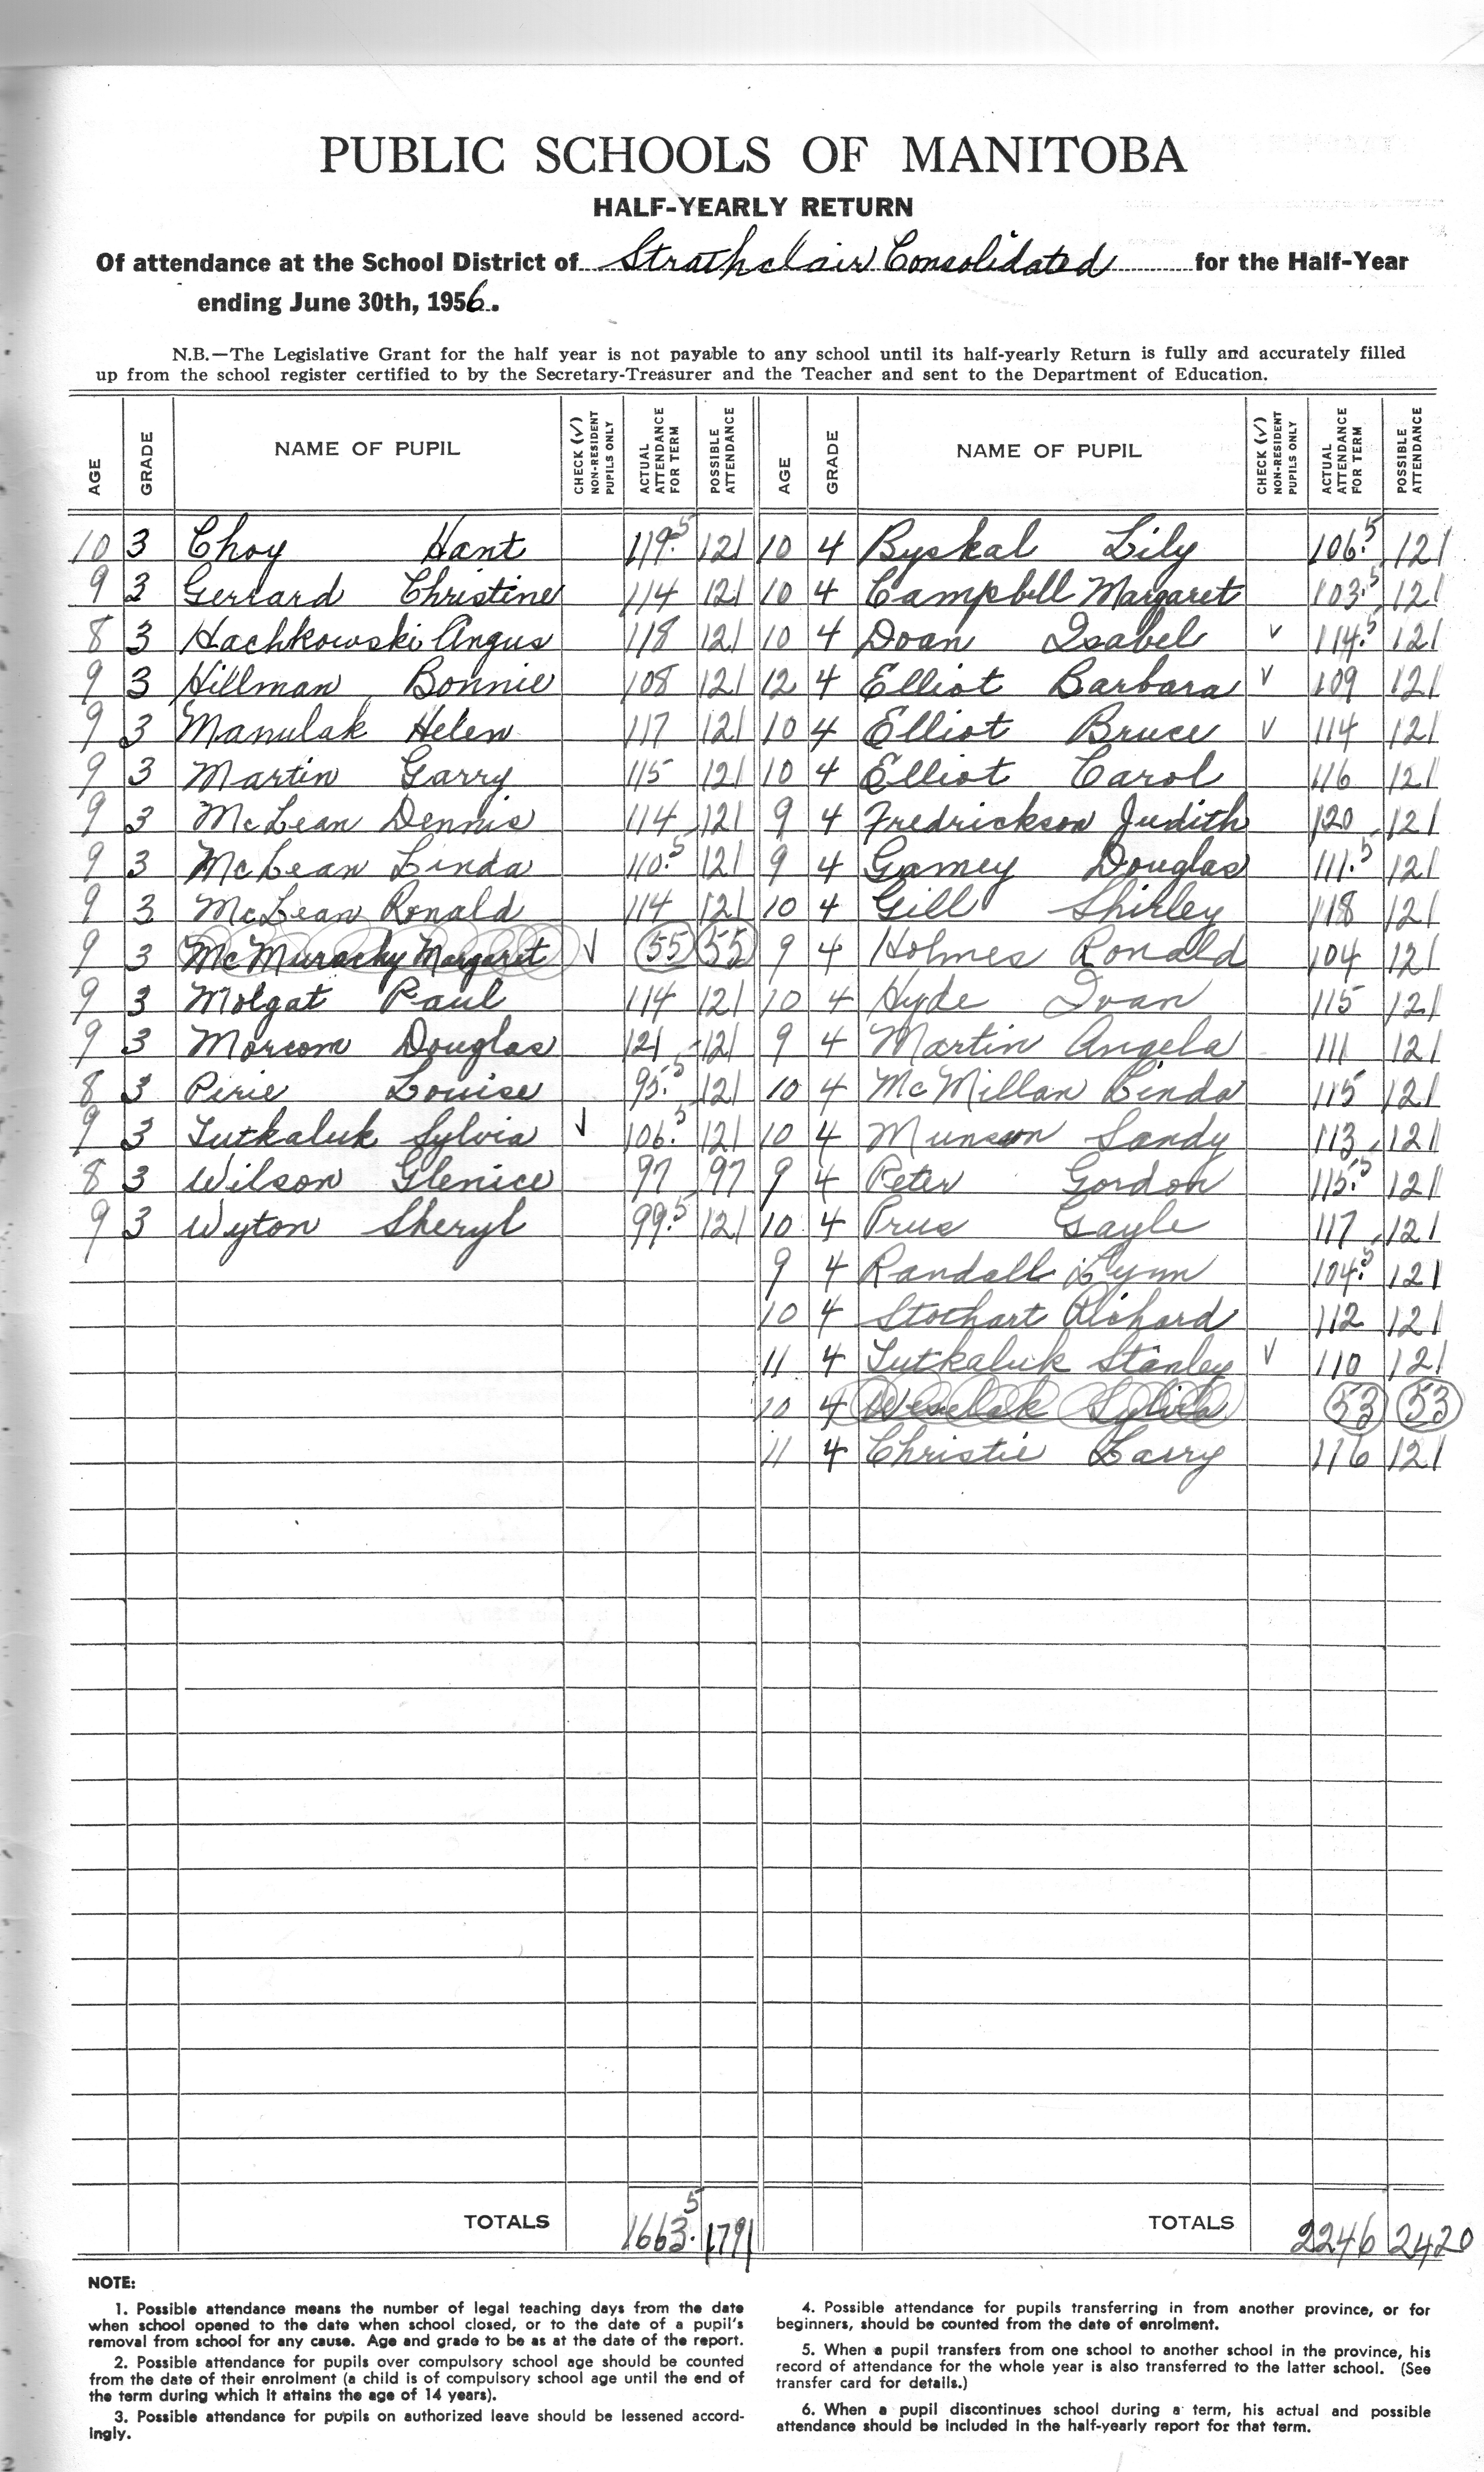 PUBLIC SCHOOLS OF MANITOBA
HALF-YEARLY RETURN
Of attendance at the School District of Strathclair Consolidated for the Half-Year
ending June 30th, 1956.
N.B.—The Legislative Grant for the half year is not payable to any school until its half-yearly Return is fully and accurately filled
up from the school register certified to by the Secretary-Treasurer and the Teacher and sent to the Department of Education.
AGE GRADE NAME OF PUPIL CHECK (✓) NON-RESIDENT PUPILS ONLY ACTUAL ATTENDANCE FOR TERM POSSIBLE ATTENDANCE
10 3 Choy Hant 119.5 121
9 3 Gerrard Christine 114 121
8 3 Hachkowski Angus 118 121
9 3 Hillman Bonnie 108 121
9 3 Manulak Helen 117 121
9 3 Martin Garry 115 121
9 3 McLean Dennis 114 121
9 3 McLean Linda 110.5 121
9 3 McLean Ronald 114 121
9 3 McMurachy Margaret ✓ 55 55
9 3 Molgat Paul 114 121
9 3 Morcom Douglas 121 121
8 3 Pirie Louise 95.5 121
9 3 Tutkaluk Sylvia ✓ 106.5 121
8 3 Wilson Glenice 97 97
9 3 Wyton Sheryl 99.5 121
TOTALS 1663.5 1791
AGE GRADE NAME OF PUPIL CHECK (✓) NON-RESIDENT PUPILS ONLY ACTUAL ATTENDANCE FOR TERM POSSIBLE ATTENDANCE
10 4 Byskal Lily 106.5 121
10 4 Campbell Margaret 103.5 121
10 4 Doan Isabel ✓ 114.5 121
12 4 Elliot Barbara ✓ 109 121
10 4 Elliot Bruce ✓ 114 121
10 4 Elliot Carol 116 121
9 4 Fredrickson Judith 120 121
9 4 Gamey Douglas 111.5 121
10 4 Gill Shirley 118 121
9 4 Holmes Ronald 104 121
10 4 Hyde Ivan 115 121
9 4 Martin Angela 111 121
10 4 McMillan Linda 115 121
10 4 Munson Sandy 113 121
9 4 Peter Gordon 115.5 121
10 4 Prus Gayle 117 121
9 4 Randall Lynn 104.5 121
10 4 Stothart Richard 112 121
11 4 Tutkaluk Stanley ✓ 110 121
10 4 Weselak Sylvia 53 53
11 4 Christie Larry 116 121
TOTALS 2246 2420
NOTE:
1. Possible attendance means the number of legal teaching days from the date
when school opened to the date when school closed, or to the date of a pupil's
removal from school for any cause. Age and grade to be as at the date of the report.
2. Possible attendance for pupils over compulsory school age should be counted
from the date of their enrolment (a child is of compulsory school age until the end of
the term during which it attains the age of 14 years).
3. Possible attendance for pupils on authorized leave should be lessened accord-
ingly.
4. Possible attendance for pupils transferring in from another province, or for
beginners, should be counted from the date of enrolment.
5. When a pupil transfers from one school to another school in the province, his
record of attendance for the whole year is also transferred to the latter school. (See
transfer card for details.)
6. When a pupil discontinues school during a term, his actual and possible
attendance should be included in the half-yearly report for that term.